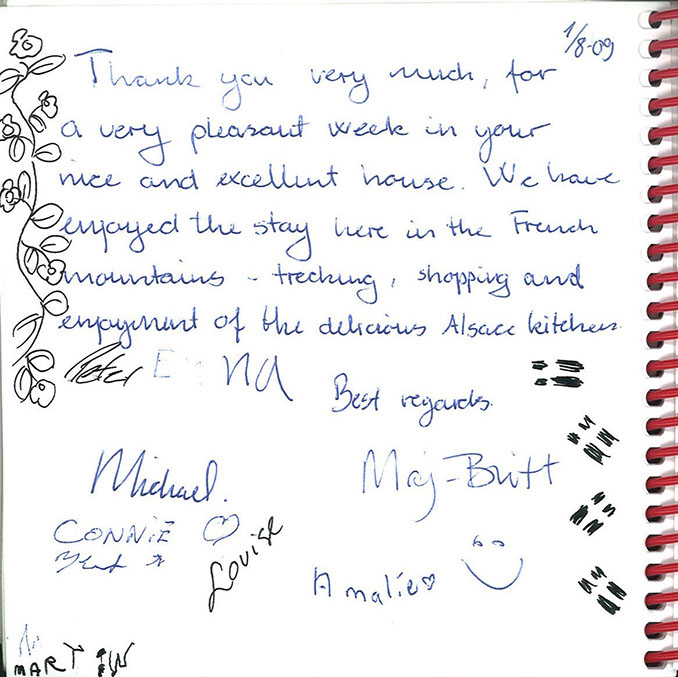 1/8-09
Thank you very much, for
a very pleasant week in your
nice and excellent house. We have
enjoyed the stay here in the French
mountains - trecking, shopping and
enjoyment of the delicious Alsace kitchen.
Peter
Best regards.
Michael.
Maj-Britt
CONNIE
Louise
Amalie
MARTIN